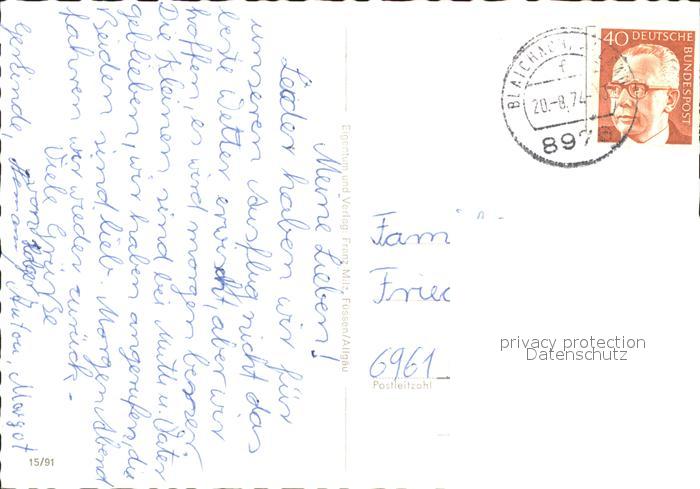 Meine Lieben!
Leider haben wir für
unseren Ausflug nicht das
beste Wetter erwischt, aber wir
hoffen, es wird morgen besser.
Die Kleinen sind bei Mutti u. Vater
geblieben, wir haben angerufen, die
Beiden sind lieb. Morgen Abend
fahren wir wieder zurück -
Viele Grüße
von
Gerlinde, Anton, Margot
15/91
Eigentum und Verlag: Franz Milz, Füssen/Allgäu
BLAICHACH
f
20.-8.74
897
40 DEUTSCHE
BUNDESPOST
Fam
Fried
6961
Postleitzahl
privacy protection
Datenschutz